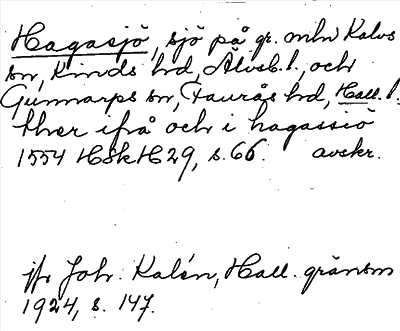 Hagasjö, sjö på gr. mln Kalvs
sn, Kinds hd, Älvsb. l., och
Gunnarps sn, Faurås hd, Hall. l.
ther ifrå och i hagassiö
1554 HSkH 29, s. 66. avskr.
jfr Joh. Kalén, Hall. gränsm
1924, s. 147.